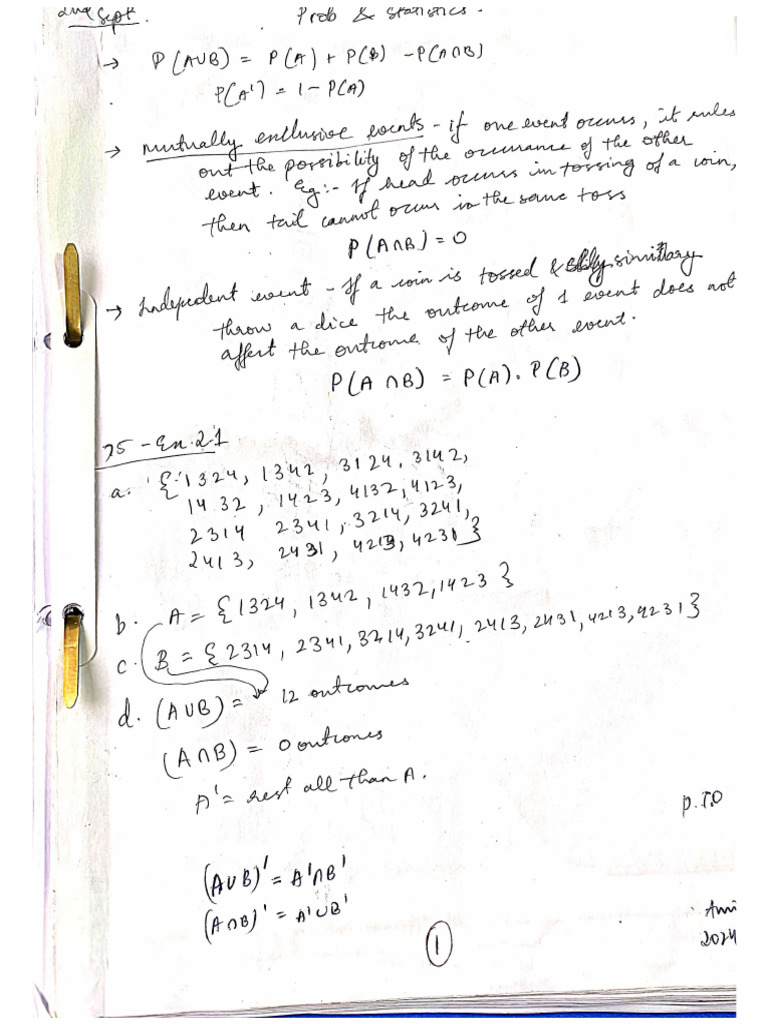 2nd Sept. Prob & Statistics.
→ P(A∪B) = P(A) + P(B) - P(A∩B)
P(A') = 1 - P(A)
→ Mutually exclusive events - if one event occurs, it rules
out the possibility of the occurance of the other
event. Eg:- If head occurs in tossing of a coin,
then tail cannot occur in the same toss
P(A∩B) = 0
→ Independent event - If a coin is tossed & similary
throw a dice the outcome of 1 event does not
affect the outcome of the other event.
P(A∩B) = P(A). P(B)
75 - Ex. 2.1
a. {1324, 1342, 3124, 3142,
1432, 1423, 4132, 4123,
2314 2341, 3214, 3241,
2413, 2431, 4213, 4231}
b. A = {1324, 1342, 1432, 1423}
c. B = {2314, 2341, 3214, 3241, 2413, 2431, 4213, 4231}
d. (A∪B) = 12 outcomes
(A∩B) = 0 outcomes
A' = rest all than A.
P.T.O
(A∪B)' = A'∩B'
(A∩B)' = A'∪B'
Ami
2024
1